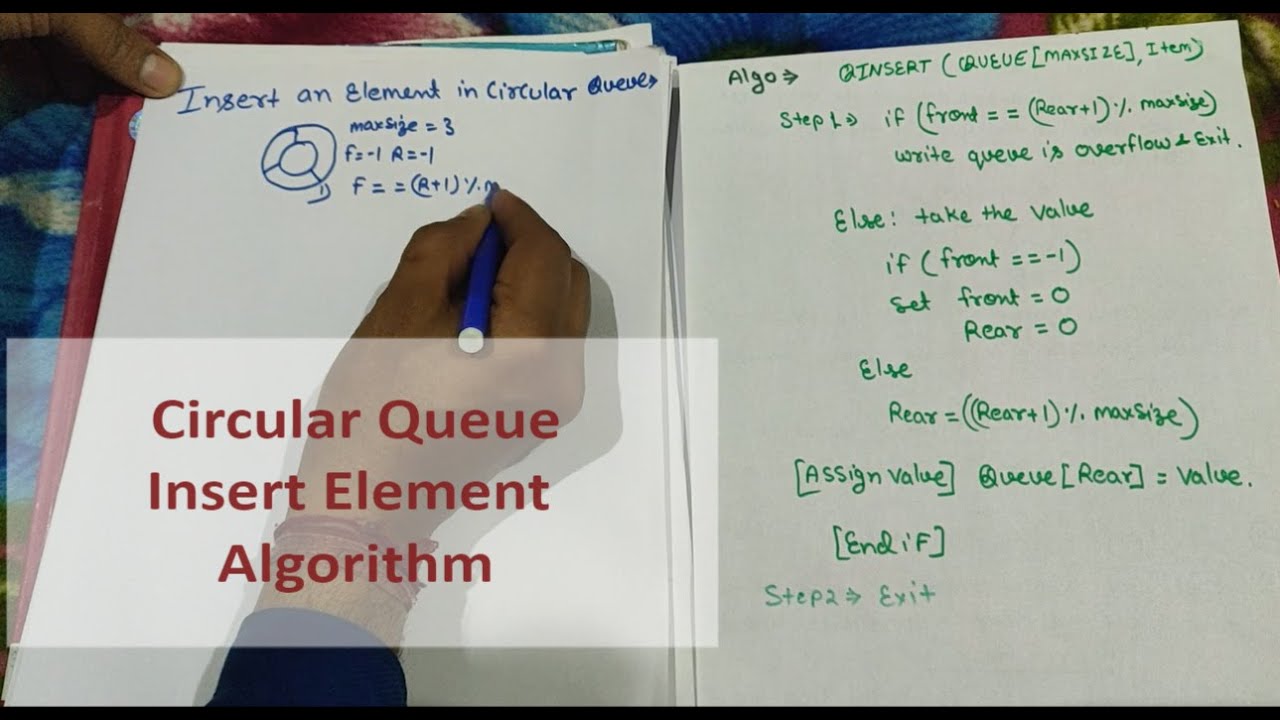 Insert an Element in Circular Queue→
maxsize = 3
f=-1 R=-1
F = = (R+1) %.
Circular Queue
Insert Element
Algorithm
Algo⇒ QINSERT (QUEUE[MAXSIZE], Item)
Step 1⇒ if (front == (Rear+1) %. maxsize)
write queue is overflow & Exit.
Else: take the value
if (front ==-1)
set front = 0
Rear = 0
Else
Rear = ((Rear+1) %. maxsize)
[Assign value] Queue [Rear] = value.
[End iF]
Step2⇒ Exit